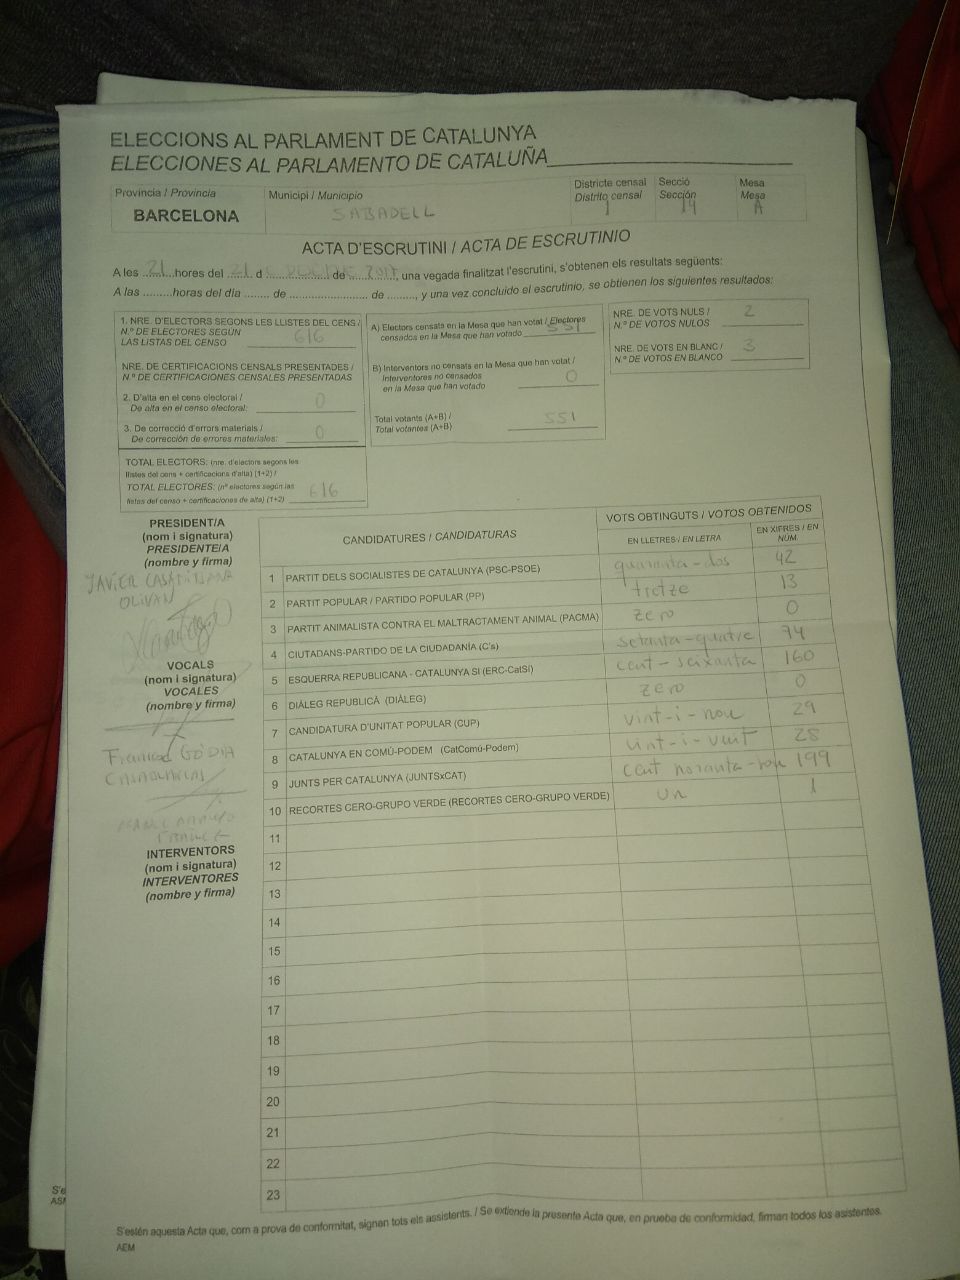 ELECCIONS AL PARLAMENT DE CATALUNYA
ELECCIONES AL PARLAMENTO DE CATALUÑA
Provincia / Provincia
BARCELONA
Municipi / Municipio
SABADELL
Districte censal
Distrito censal
1
Secció
Sección
19
Mesa
Mesa
A
ACTA D'ESCRUTINI / ACTA DE ESCRUTINIO
A les 21 hores del 21 d de 2017, una vegada finalitzat l'escrutini, s'obtenen els resultats següents:
A las .........horas del día ........ de ........................ de ........., y una vez concluido el escrutinio, se obtienen los siguientes resultados:
1. NRE. D'ELECTORS SEGONS LES LLISTES DEL CENS /
N.º DE ELECTORES SEGÚN
LAS LISTAS DEL CENSO 616
NRE. DE CERTIFICACIONS CENSALS PRESENTADES /
N.º DE CERTIFICACIONES CENSALES PRESENTADAS
2. D'alta en el cens electoral /
De alta en el censo electoral: 0
3. De correcció d'errors materials /
De corrección de errores materiales: 0
TOTAL ELECTORS: (nre. d'electors segons les
llistes del cens + certificacions d'alta) (1+2) /
TOTAL ELECTORES: (nº electores según las
listas del censo + certificaciones de alta) (1+2) 616
A) Electors censats en la Mesa que han votat / Electores
censados en la Mesa que han votado 551
B) Interventors no censats en la Mesa que han votat /
Interventores no censados
en la Mesa que han votado 0
Total votants (A+B) /
Total votantes (A+B) 551
NRE. DE VOTS NULS /
N.º DE VOTOS NULOS 2
NRE. DE VOTS EN BLANC /
N.º DE VOTOS EN BLANCO 3
PRESIDENT/A
(nom i signatura)
PRESIDENTE/A
(nombre y firma)
JAVIER
OLIVAN
VOCALS
(nom i signatura)
VOCALES
(nombre y firma)
INTERVENTORS
(nom i signatura)
INTERVENTORES
(nombre y firma)
CANDIDATURES / CANDIDATURAS
VOTS OBTINGUTS / VOTOS OBTENIDOS
EN LLETRES / EN LETRA
EN XIFRES / EN
NÚM.
1 PARTIT DELS SOCIALISTES DE CATALUNYA (PSC-PSOE) quaranta-dos 42
2 PARTIT POPULAR / PARTIDO POPULAR (PP) tretze 13
3 PARTIT ANIMALISTA CONTRA EL MALTRACTAMENT ANIMAL (PACMA) zero 0
4 CIUTADANS-PARTIDO DE LA CIUDADANÍA (C's) setanta-quatre 74
5 ESQUERRA REPUBLICANA - CATALUNYA SÍ (ERC-CatSí) cent-seixanta 160
6 DIÀLEG REPUBLICÀ (DIÀLEG) zero 0
7 CANDIDATURA D'UNITAT POPULAR (CUP) vint-i-nou 29
8 CATALUNYA EN COMÚ-PODEM (CatComú-Podem) vint-i-vuit 28
9 JUNTS PER CATALUNYA (JUNTSxCAT) cent noranta-nou 199
10 RECORTES CERO-GRUPO VERDE (RECORTES CERO-GRUPO VERDE) un 1
11
12
13
14
15
16
17
18
19
20
21
22
23
S'estén aquesta Acta que, com a prova de conformitat, signen tots els assistents. / Se extiende la presente Acta que, en prueba de conformidad, firman todos los asistentes.
AEM